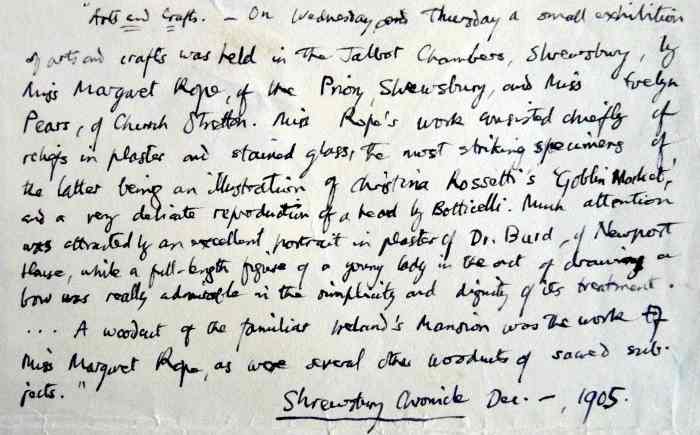 "Arts and Crafts. – On Wednesday and Thursday a small exhibition
of arts and crafts was held in the Talbot Chambers, Shrewsbury, by
Miss Margaret Rope, of the Priory, Shrewsbury, and Miss Evelyn
Pears, of Church Stretton. Miss Rope's work consisted chiefly of
reliefs in plaster and stained glass, the most striking specimens of
the latter being an illustration of Christina Rossetti's 'Goblin Market,'
and a very delicate reproduction of a head by Botticelli. Much attention
was attracted by an excellent portrait in plaster of Dr. Burd, of Newport
House, while a full-length figure of a young lady in the act of drawing a
bow was really admirable in the simplicity and dignity of its treatment.
... A woodcut of the familiar Ireland's Mansion was the work of
Miss Margaret Rope, as were several other woodcuts of sacred sub-
jects."
Shrewsbury Chronicle Dec. –, 1905.